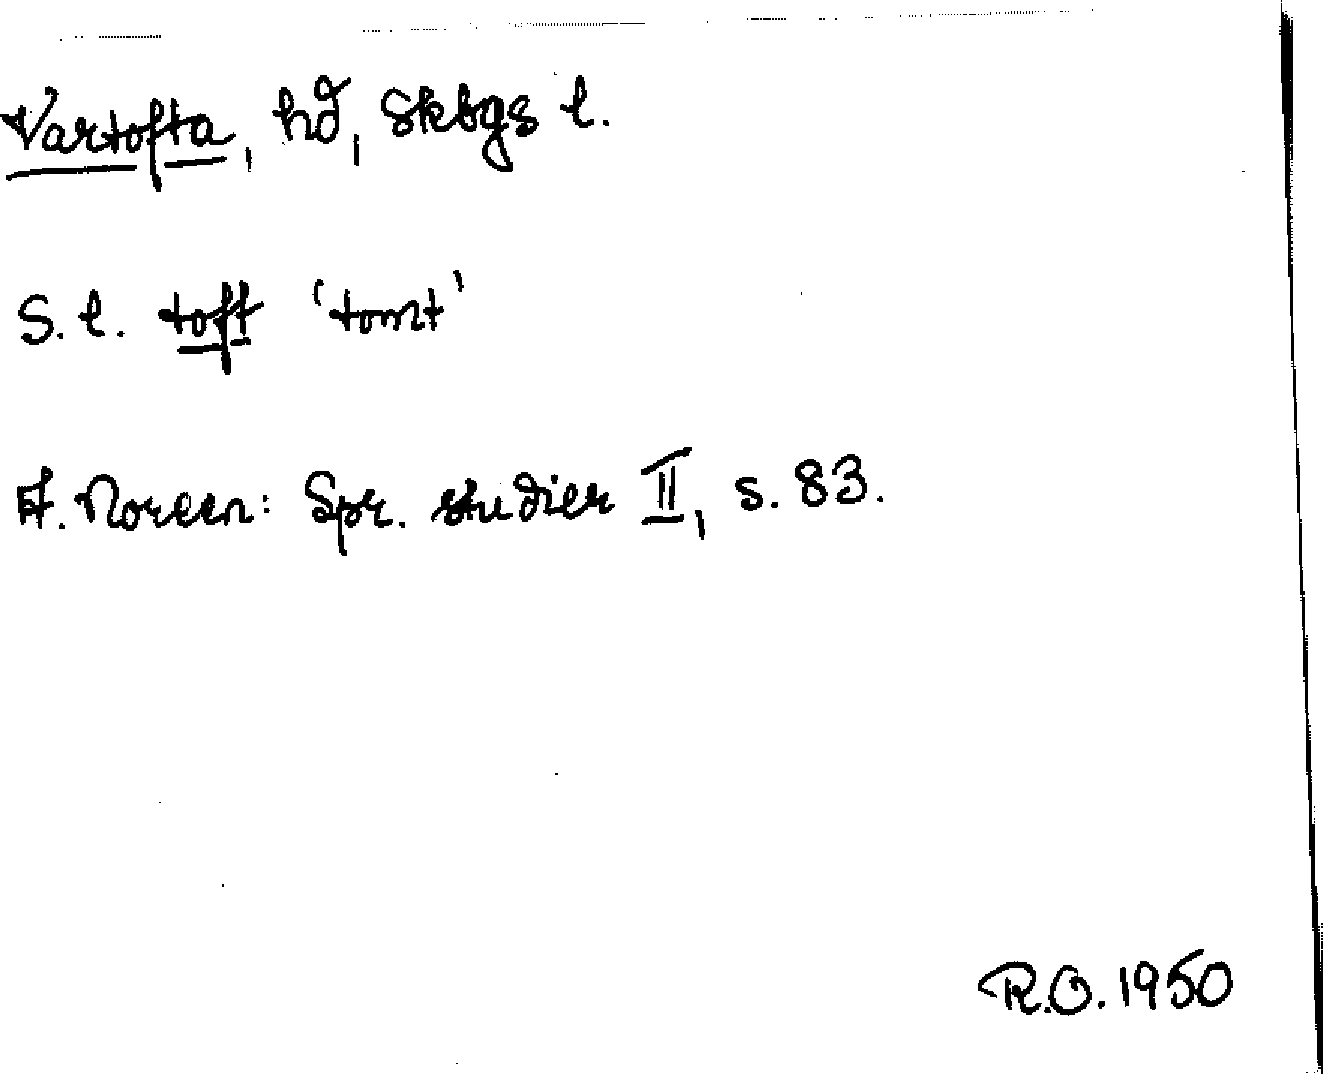 Vartofta, hd, Skbgs l.
S. l. toft 'tomt'
A. Noreen: Spr. studier II, s. 83.
R.O. 1950